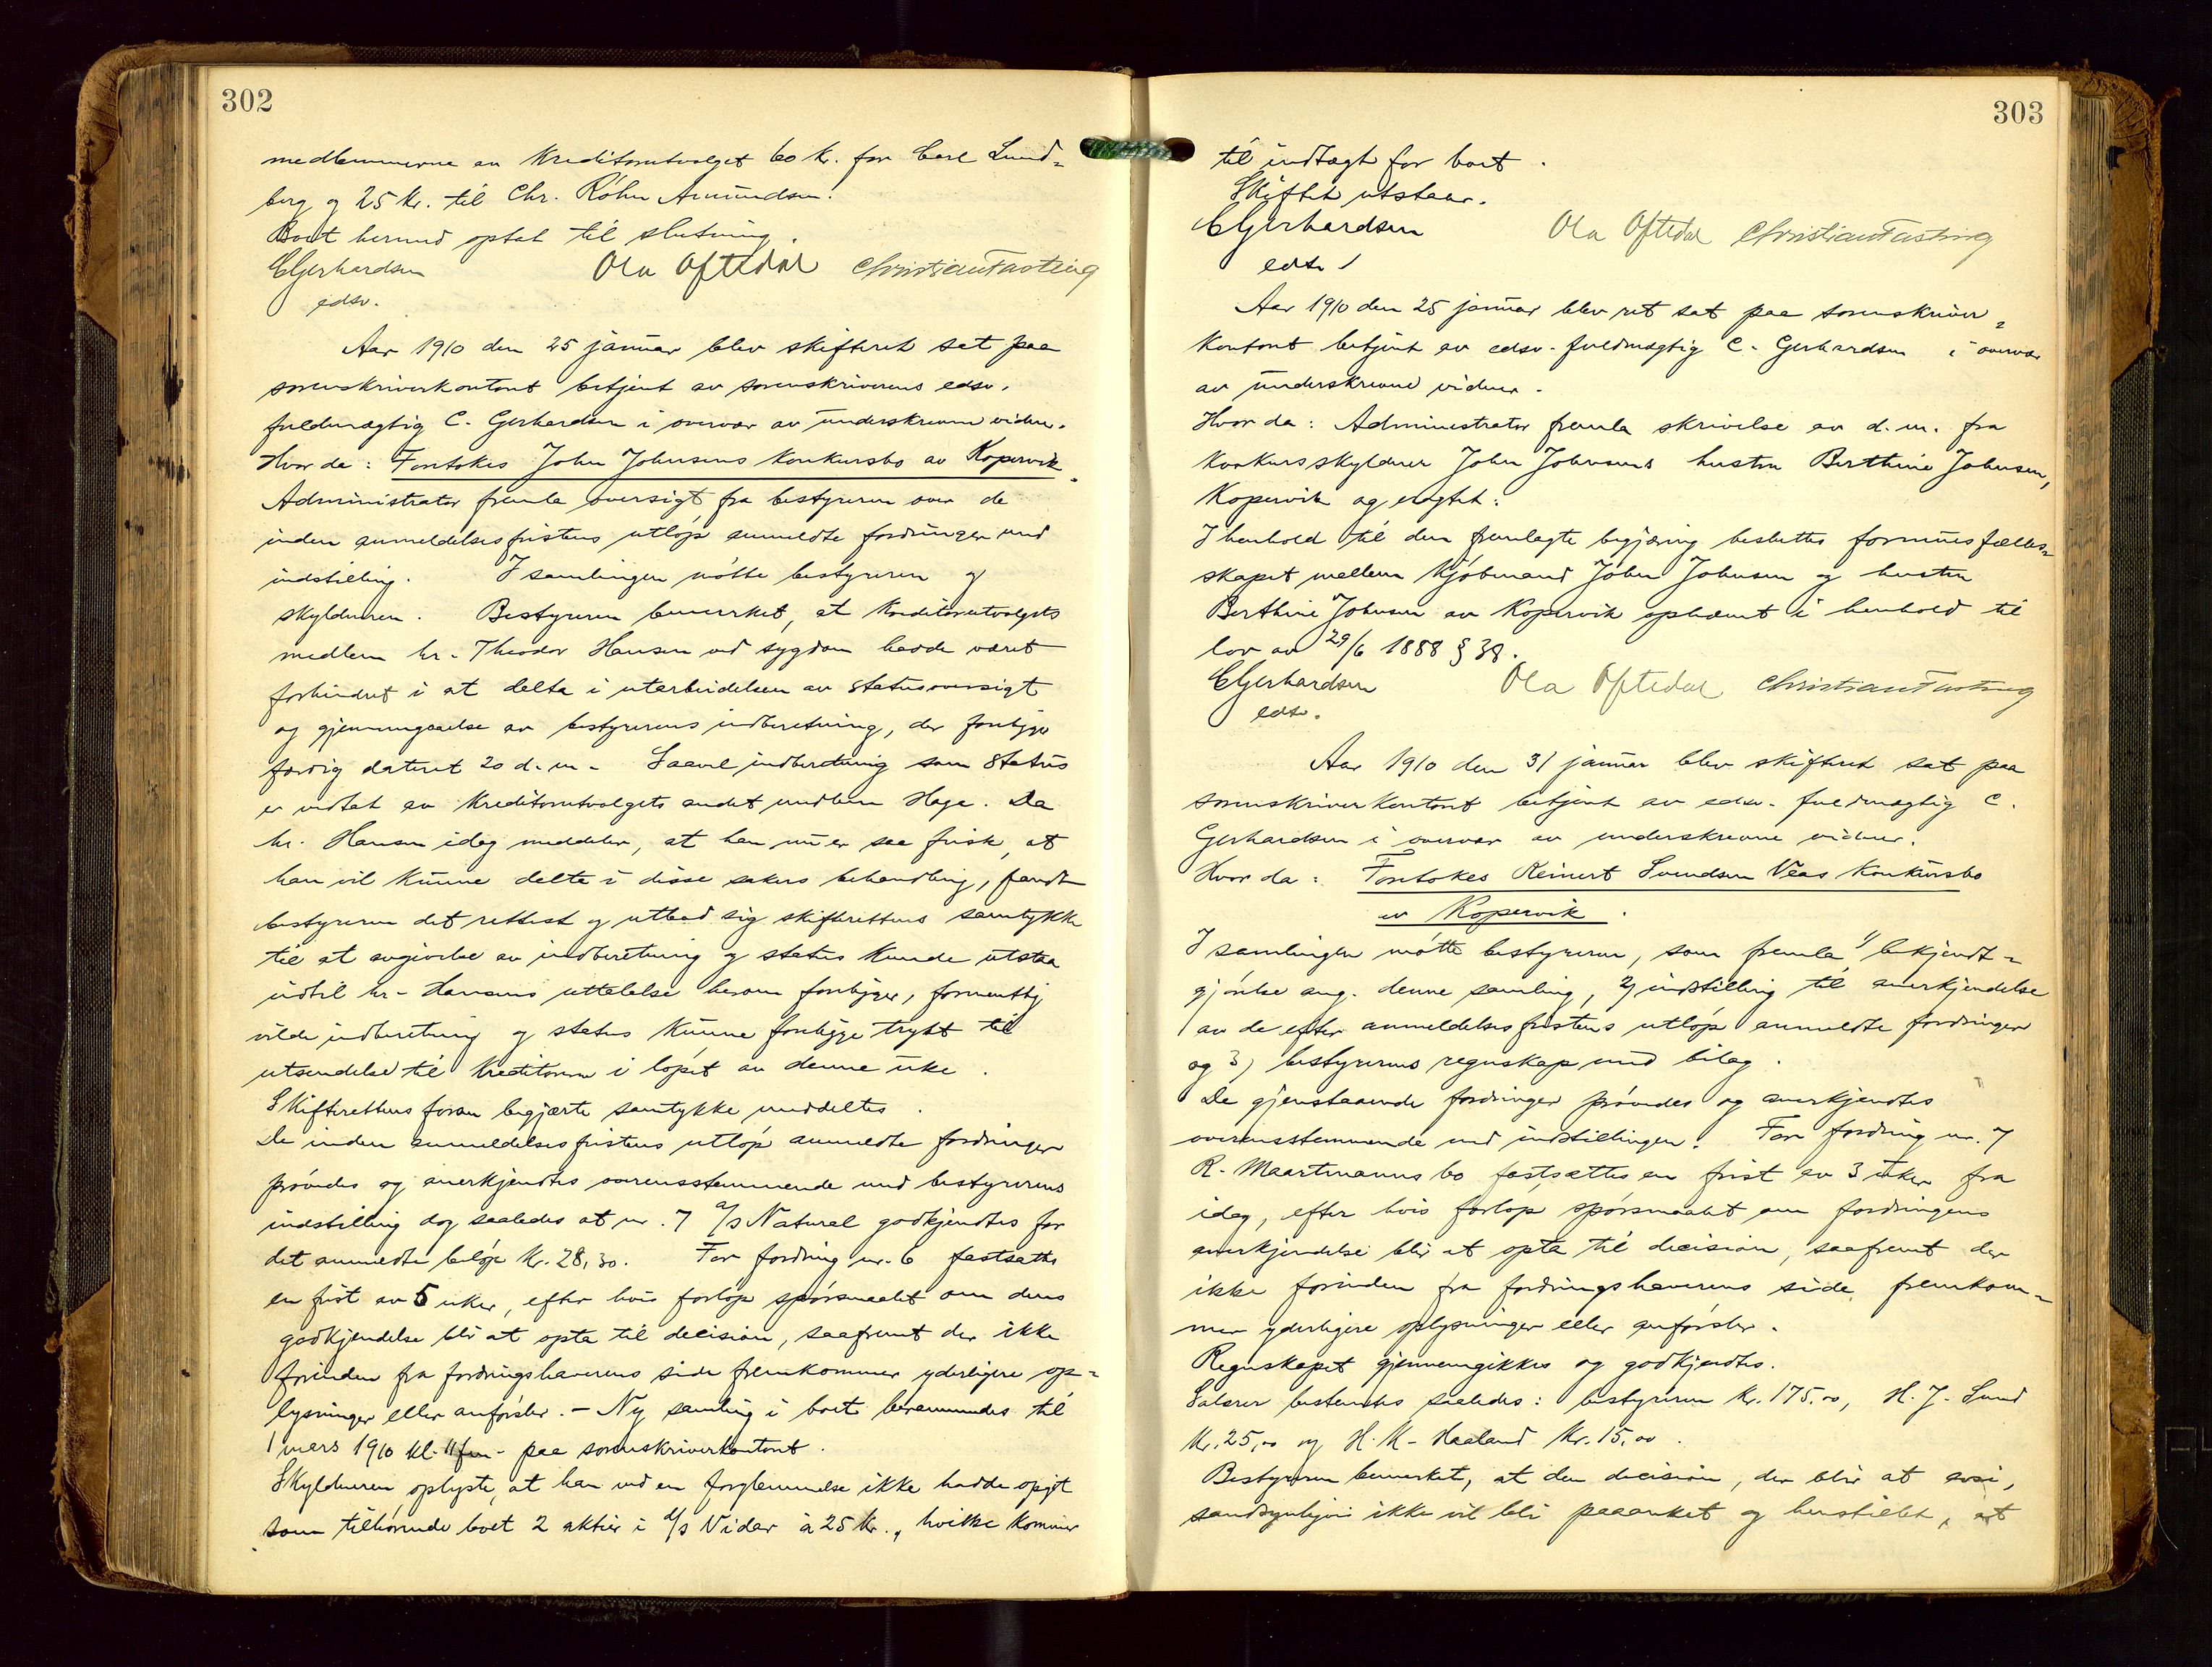 302
medlemmerne av kreditorutvalget 60 kr. for Carl Lund=
berg og 25 kr. til Chr. Røhn Amundsen.
Boet hermed optat til slutning.
CGerhardsen Ola Oftedal Christian Fasting
edsv.
Aar 1910 den 25 januar blev skifteret sat paa
sorenskriverkontoret betjent av sorenskriverens edsv.
fuldmægtig C. Gerhardsen i overvær av underskrevne vidner.
Hvor da: Fortokes John Johnsens konkursbo av Kopervik.
Administrator fremla oversigt fra bestyreren over de
inden anmeldelsesfristens utløp anmeldte fordringer med
indstilling. I samlingen møtte bestyreren og
skyldneren. Bestyreren bemerket, at kreditorutvalgets
medlem hr. Theodor Hansen ved sygdom hadde været
forhindret i at delta i utarbeidelsen av statusoversigt
og gjennemgaaelse av bestyrerens indberetning, der forligger
færdig dateret 20 d.m. Saavel indberetning som status
er vedtat av kreditorutvalgets andet medlem Hage. Da
hr. Hansen idag meddeler, at han nu er saa frisk, at
han vil kunne delta i disse sakers behandling, fandt
bestyreren det rettest og utbad sig skifterettens samtykke
til at avgivelse av indberetning og status kunde utstaa
indtil hr. Hansens uttalelse herom forligger, formentlig
vilde indberetning og status kunne foreligge trykt til
utsendelse til kreditorerne i løpet av denne uke.
Skifterettens foran begjærte samtykke meddeltes.
De inden anmeldelsesfristens utløp anmeldte fordringer
prøvedes og anerkjendtes overensstemmende med bestyrerens
indstilling dog saaledes at nr. 7 a/s Natural godkjendtes for
det anmeldte beløp kr. 28,30. For fordring nr. 6 fastsattes
en frist av 5 uker, efter hvis forløp spørsmaalet om dens
godkjendelse bli at opta til decision, saafremt der ikke
forinden fra fordringshaverens side fremkommer yderligere op=
lysninger eller anførsler. - Ny samling i boet berammedes til
1 mars 1910 kl. 11 fm. paa sorenskriverkontoret.
Skyldneren oplyste, at han ved en forglemmelse ikke hadde opgit
som tilhørende boet 2 aktier i a/s Vidar à 25 kr., hvilke kommer
303
til indtægt for boet.
Skiftet utstaar.
CGerhardsen Ola Oftedal Christian Fasting
edsv.
Aar 1910 den 25 januar blev ret sat paa sorenskriver=
kontoret betjent av edsv. fuldmægtig C. Gerhardsen i overvær
av underskrevne vidner.
Hvor da: Administrator fremla skrivelse av d.m. fra
konkursskyldner John Johnsens hustru Berthine Johnsen,
Kopervik og eragtet:
I henhold til den fremlagte begjæring besluttes formuesfælles=
skapet mellem kjøbmand John Johnsen og hustru
Berthine Johnsen av Kopervik ophævet i henhold til
lov av 29/6 1888 § 38.
CGerhardsen Ola Oftedal Christian Fasting
edsv.
Aar 1910 den 31 januar blev skifteret sat paa
sorenskriverkontoret betjent av edsv. fuldmægtig C.
Gerhardsen i overvær av underskrevne vidner.
Hvor da: Fortokes Reinert Svendsen Veas konkursbo
av Kopervik.
I samlingen møtte bestyreren, som fremla 1) bekjendt=
gjørelse ang. denne samling, 2) indstilling til anerkjendelse
av de efter anmeldelsesfristens utløp anmeldte fordringer
og 3) bestyrerens regnskap med bilag.
De gjenstaaende fordringer prøvedes og anerkjendtes
overensstemmende med indstillingen. For fordring nr. 7
R. Maartmanns bo fastsattes en frist av 3 uker fra
idag, efter hvis forløp spørsmaalet om fordringens
anerkjendelse blir at opta til decision, saafremt der
ikke forinden fra fordringshaverens side fremkom=
mer yderligere oplysninger eller anførsler.
Regnskapet gjennemgikkes og godkjendtes.
Salærer bestemtes saaledes: bestyreren kr. 175.00, H. J. Lund
kr. 25,00 og H. K. Haaland kr. 15,00.
Bestyreren bemerket, at den decision, der blir at avsi,
sandsynligvis ikke vil bli paaanket og henstillet, at